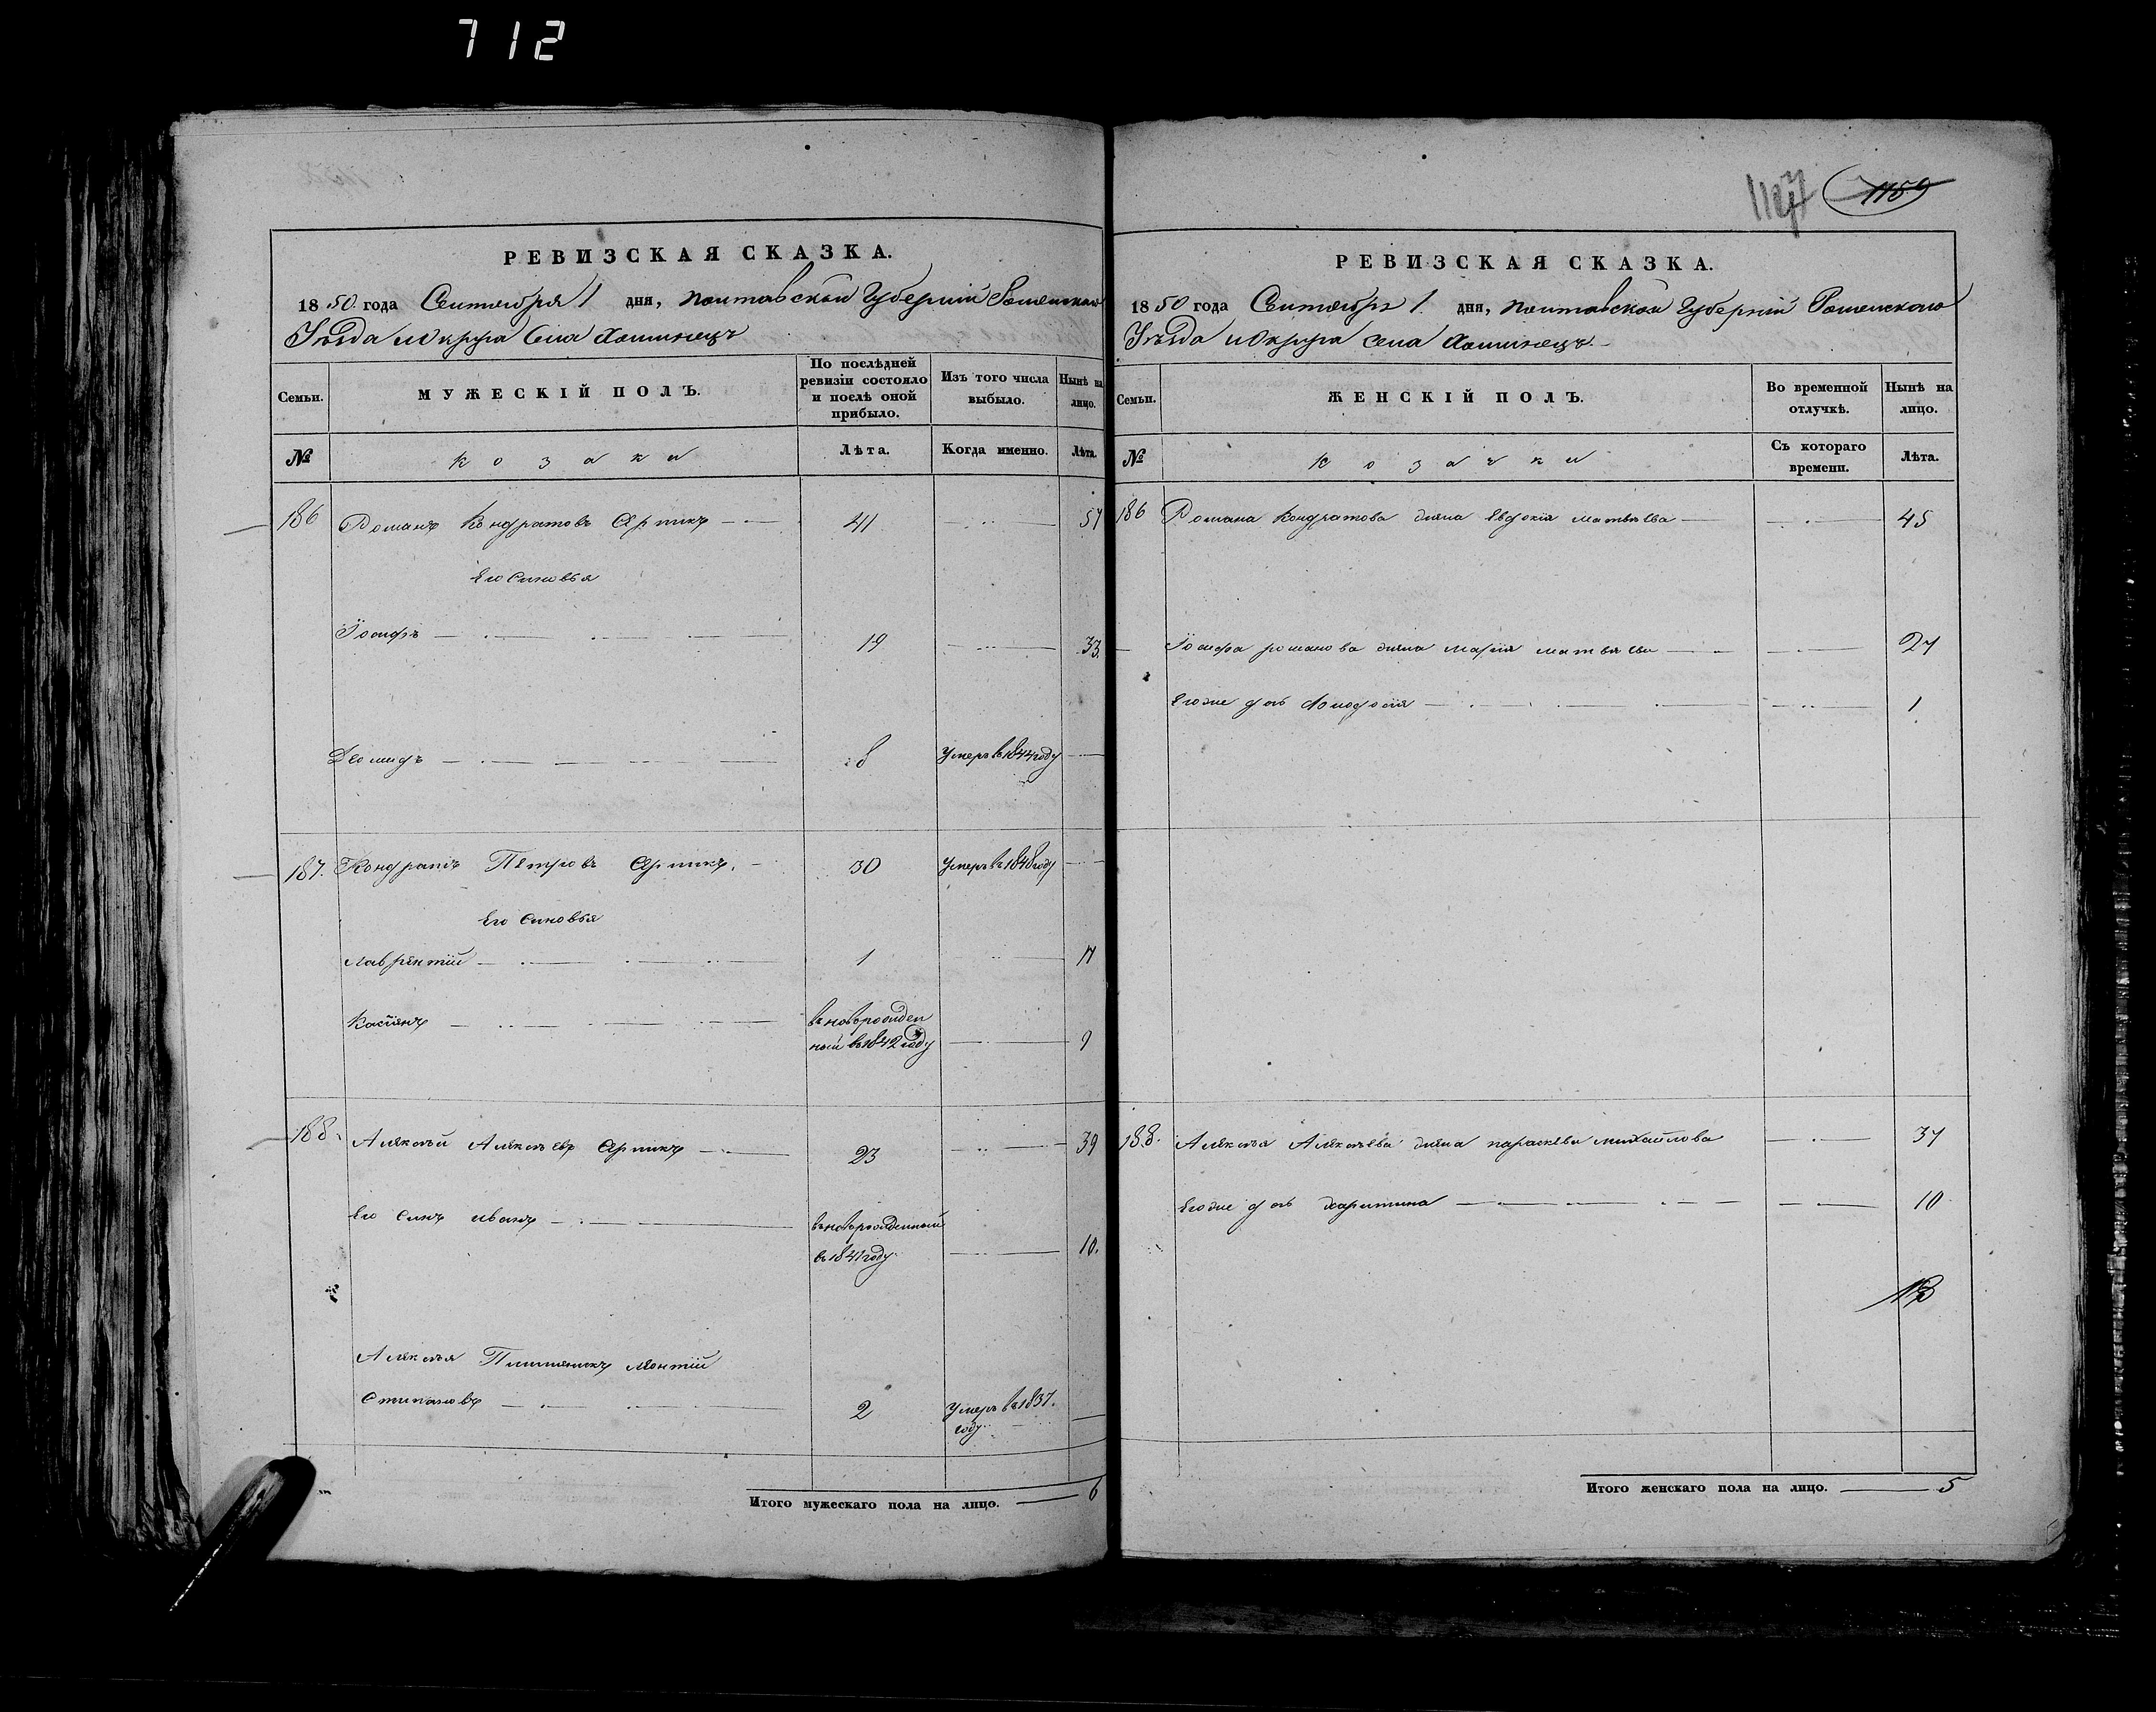 712
РЕВИЗСКАЯ СКАЗКА.
1850 года Сентября 1 дня, Полтавской Губерніи Роменскаго
Уѣзда и Округа Села
Семьи.
МУЖЕСКІЙ ПОЛЪ.
По послѣдней ревизіи состояло и послѣ оной прибыло.
Изъ того числа выбыло.
Нынѣ на лицо.
№
козаки
Лѣта.
Когда именно.
Лѣта.
186 Романъ Кондратовъ 41 57
Его Синовья
Іосифъ 19 33.
Деомидъ 8 Умеръ въ 1844 году
187. Кондратъ Петровъ 30 Умеръ въ 1848 году
Его Синовья
Лаврентій 1 17
Касіянъ
въ новорожден
ный въ 1842 году 9
188. Алексѣй Алексѣевъ 23 39
Его Синъ Иванъ
въ новорожденный
въ 1841 году 10.
Алексѣя Леонтій
Степановъ 2 Умеръ въ 1837.
году
Итого мужескаго пола на лицо. 6
1159
РЕВИЗСКАЯ СКАЗКА.
1850 года Сентября 1. дня, Полтавской Губерніи Роменскаго
Уѣзда и Округа села
Семьи.
ЖЕНСКІЙ ПОЛЪ.
Во временной отлучкѣ.
Нынѣ на лицо.
№
козачки
Съ котораго времени.
Лѣта.
186 Романа Кондратова жена Евдокія Матвѣева 45
Іосифа Романова жена Марія Матвѣева 27
Его же дочь 1
188. Алексѣя Алексѣева жена Параскева Михайлова 37
Его же дочь Харитина 10
Итого женскаго пола на лицо. 5